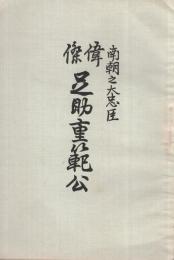 南朝之大忠臣
偉傑 足助重範公